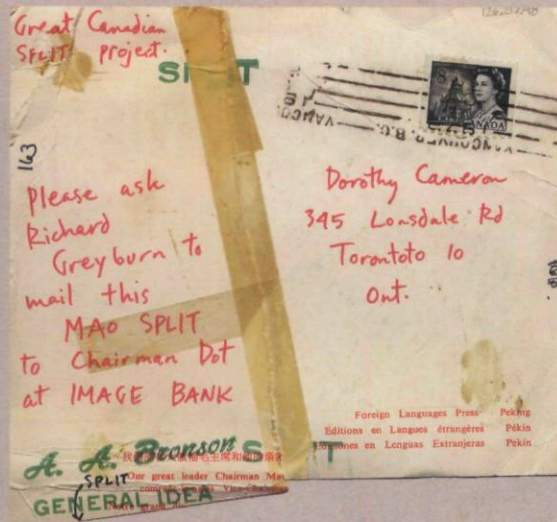 Great Canadian
SPLIT project.
SPLIT
8
CANADA
VANCOUVER B.C.
163
Please ask
Richard
Greyburn to
mail this
MAO SPLIT
to Chairman Dot
at IMAGE BANK
Dorothy Cameron
345 Lonsdale Rd
Torontoto 10
Ont.
Foreign Languages Press Peking
Editions en Langues étrangères Pékin
Ediciones en Lenguas Extranjeras Pekín
A. A. Bronson
SPLIT
SPLIT
毛主席和
Our great leader Chairman
GENERAL IDEA
Notre grand